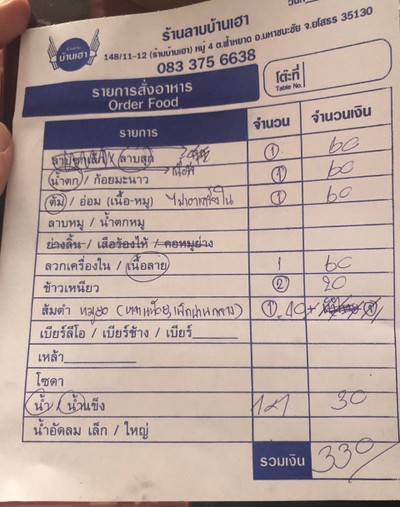 วันที่
บ้านเฮา
ร้านลาบบ้านเฮา
148/11-12 (ร้านบ้านเฮา) หมู่ 4 ต.ฟ้าหยาด อ.มหาชนะชัย จ.ยโสธร 35130
083 375 6638
รายการสั่งอาหาร
Order Food
โต๊ะที่
Table No.
รายการ จำนวน จำนวนเงิน
/ ลาบสุก 1 60
น้ำตก / ก้อยมะนาว 1 60
ต้ม / อ่อม (เนื้อ-หมู) ไม่เอาเครื่องใน 1 60
ลาบหมู / น้ำตกหมู
ย่างลิ้น / เสือร้องไห้ / คอหมูย่าง
ลวกเครื่องใน / เนื้อลาย 1 60
ข้าวเหนียว 2 20
ส้มตำ 1 40+
เบียร์ลีโอ / เบียร์ช้าง / เบียร์
เหล้า
โซดา
น้ำ / น้ำแข็ง 1×1 30
น้ำอัดลม เล็ก / ใหญ่
รวมเงิน 330